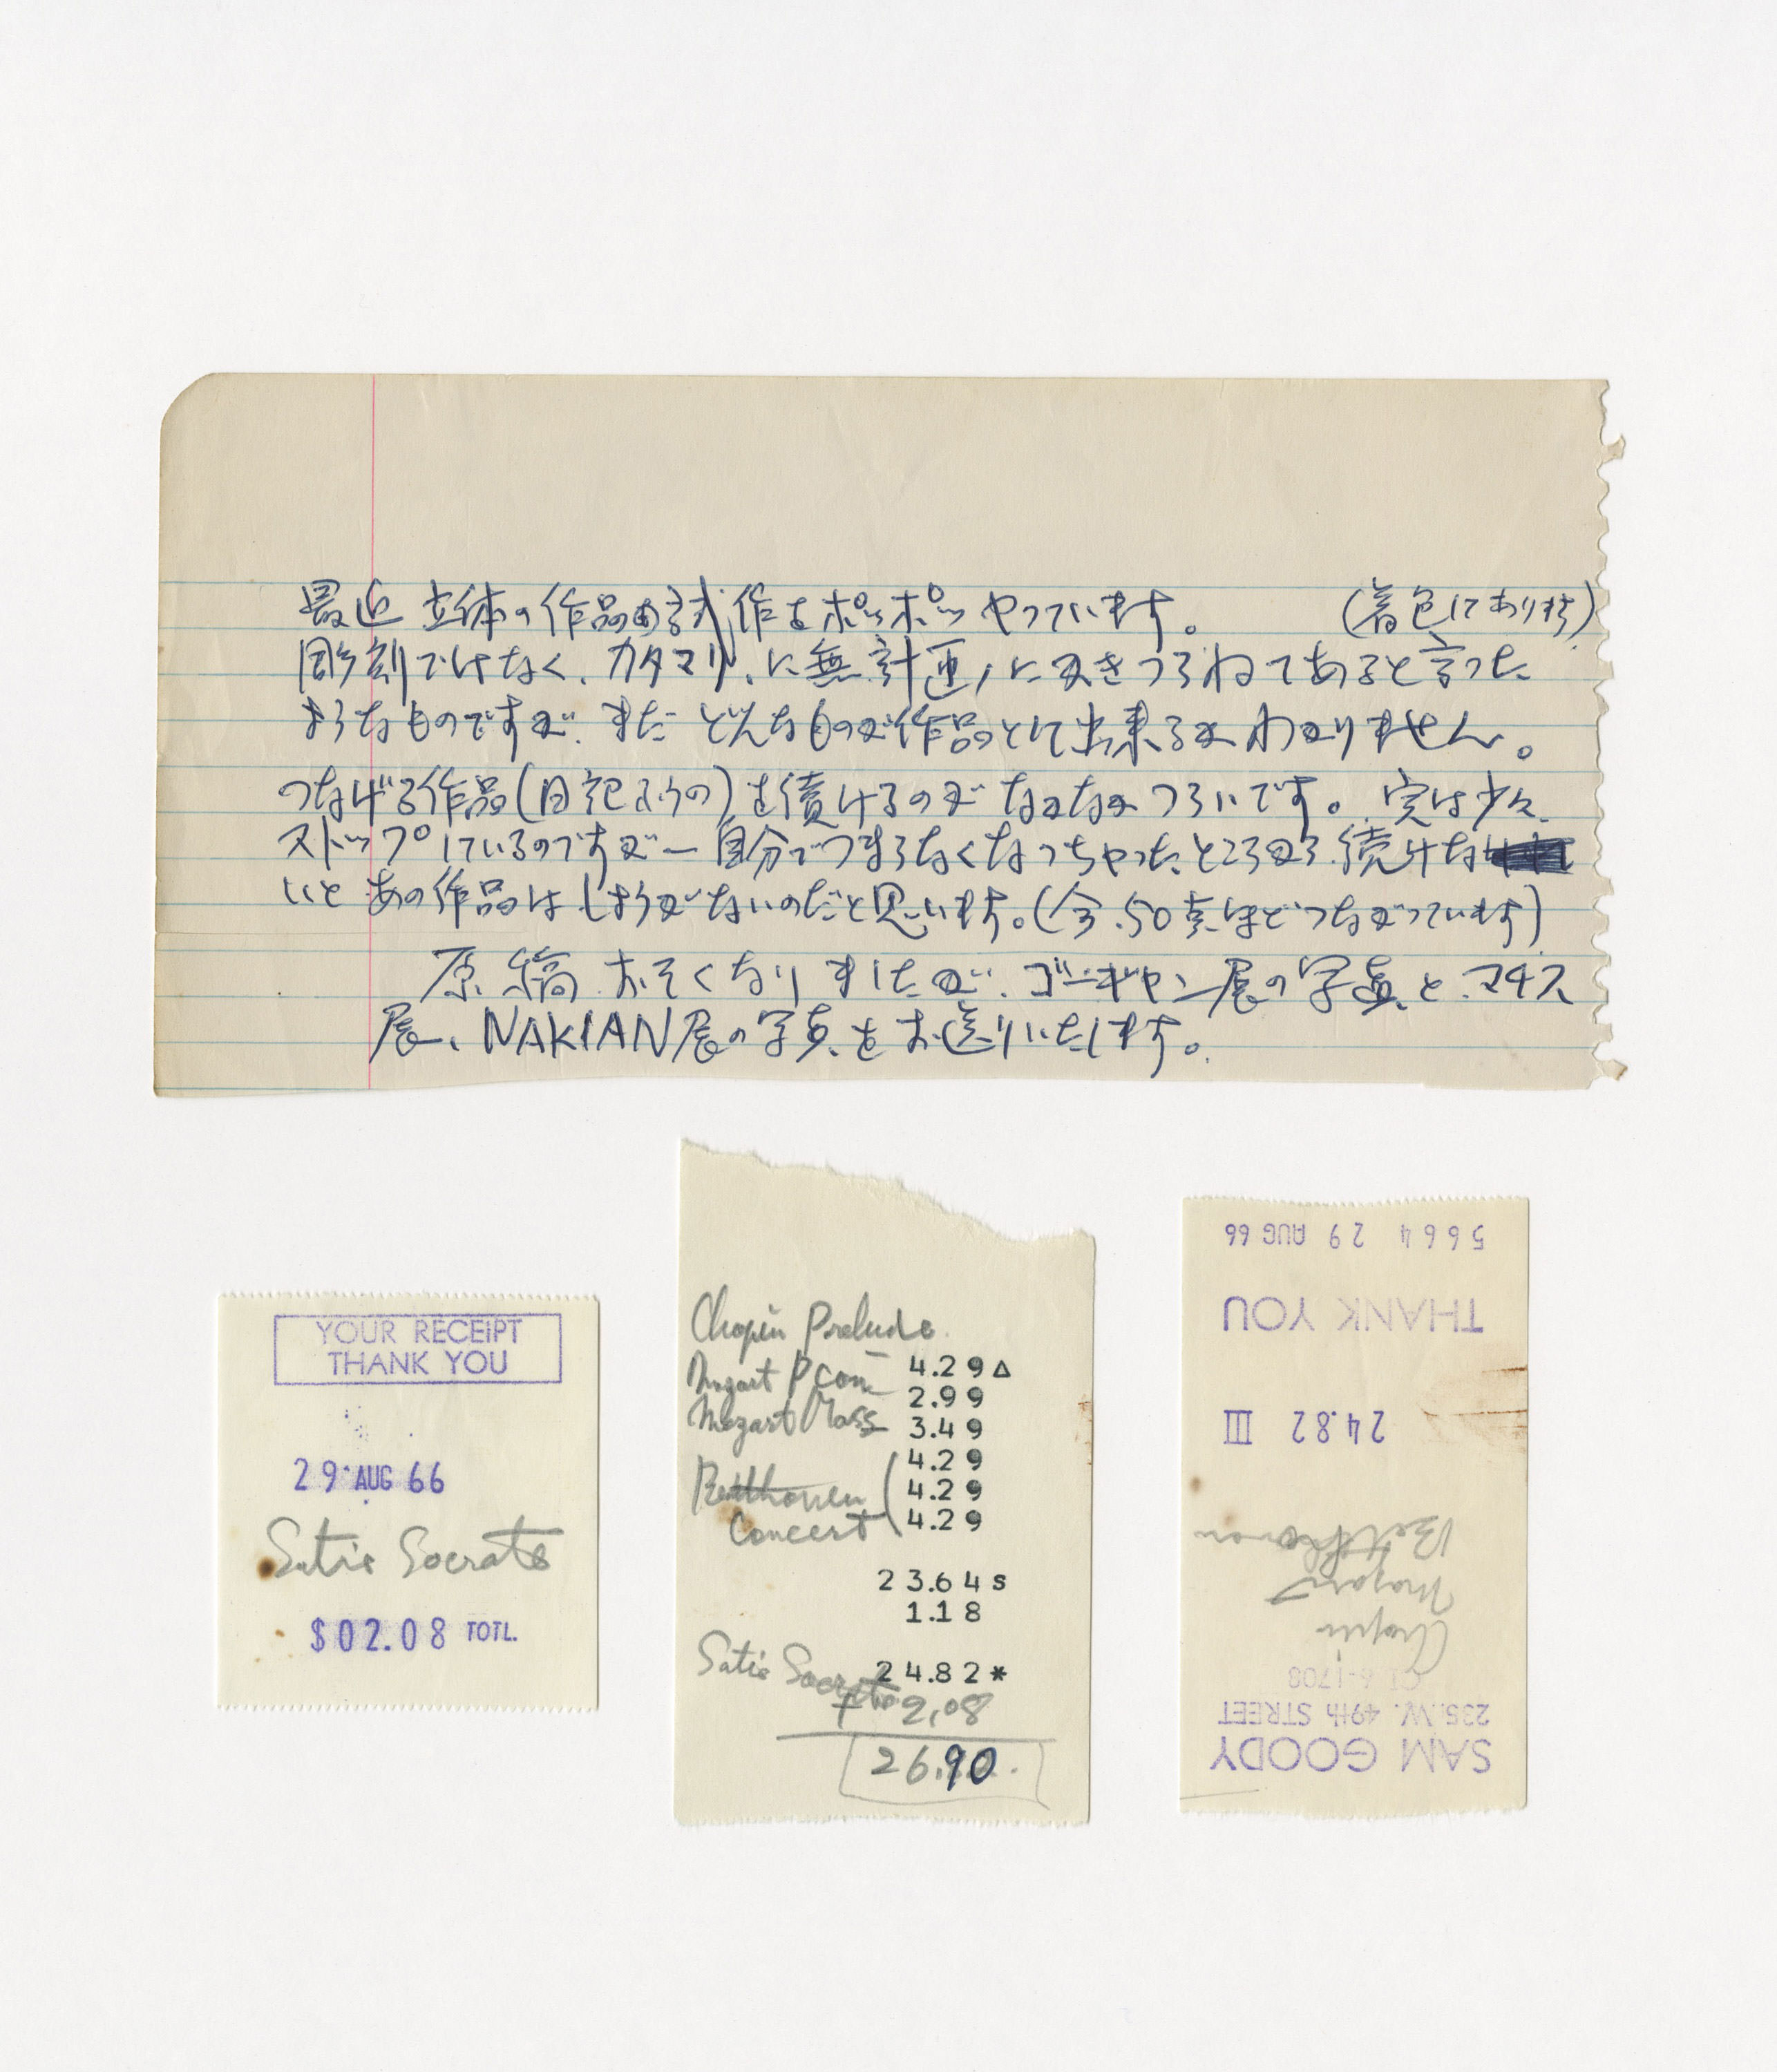 最近 立体の作品の試作をポツポツやっています。 (着色してあります)
彫刻ではなく、カタマリ、に無計画に突きつらねてあると言った
ようなものですが、まだどんなものが作品として出来るかわかりません。
つなげる作品(日記ふうの)を続けるのがなかなかつらいです。実は少々
ストップしているのですが— 自分でつまらなくなっちゃったところから続けな
いと あの作品はしようがないのだと思います。(今、50点ほどつながっています)
原稿おそくなりましたが、ゴーギャン展の写真と、マチス
展、NAKIAN展の写真をお送りいたします。
YOUR RECEIPT
THANK YOU
29 AUG 66
Satie Socrate
$02.08 TOTL.
Chopin Prelude
4.29Δ
Mozart P Con
2.99
Mozart Mass
3.49
4.29
Beethoven
4.29
Concert
4.29
23.64 S
1.18
Satie Socrate
24.82*
+ 2.08
26.90.
SAM GOODY
235 W. 49th STREET
CI 6-1708
Chopin
Mozart
Beethoven
24.82 III
THANK YOU
5664 29 AUG 66